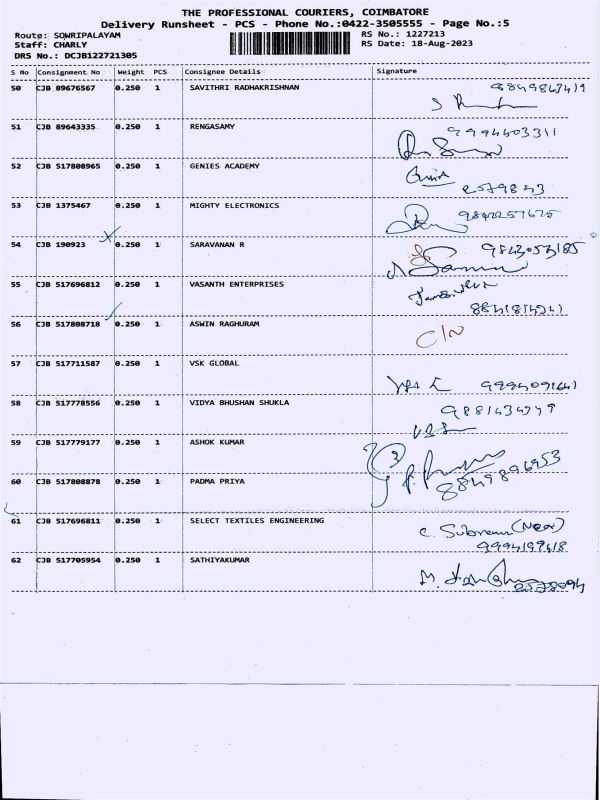 THE PROFESSIONAL COURIERS, COIMBATORE
Delivery Runsheet - PCS - Phone No.:0422-3505555 - Page No.:5
Route: SOWRIPALAYAM RS No.: 1227213
Staff: CHARLY RS Date: 18-Aug-2023
DRS No.: DCJB122721305
S No Consignment No Weight PCS Consignee Details Signature
50 CJB 89676567 0.250 1 SAVITHRI RADHAKRISHNAN
51 CJB 89643335 0.250 1 RENGASAMY 9994403311
52 CJB 517808965 0.250 1 GENIES ACADEMY 2579843
53 CJB 1375467 0.250 1 MIGHTY ELECTRONICS
54 CJB 190923 0.250 1 SARAVANAN R 9843053185
55 CJB 517696812 0.250 1 VASANTH ENTERPRISES
56 CJB 517808718 0.250 1 ASWIN RAGHURAM C/N
57 CJB 517711587 0.250 1 VSK GLOBAL 9994091641
58 CJB 517778556 0.250 1 VIDYA BHUSHAN SHUKLA
59 CJB 517779177 0.250 1 ASHOK KUMAR
60 CJB 517808878 0.250 1 PADMA PRIYA
61 CJB 517696811 0.250 1 SELECT TEXTILES ENGINEERING
62 CJB 517705954 0.250 1 SATHIYAKUMAR